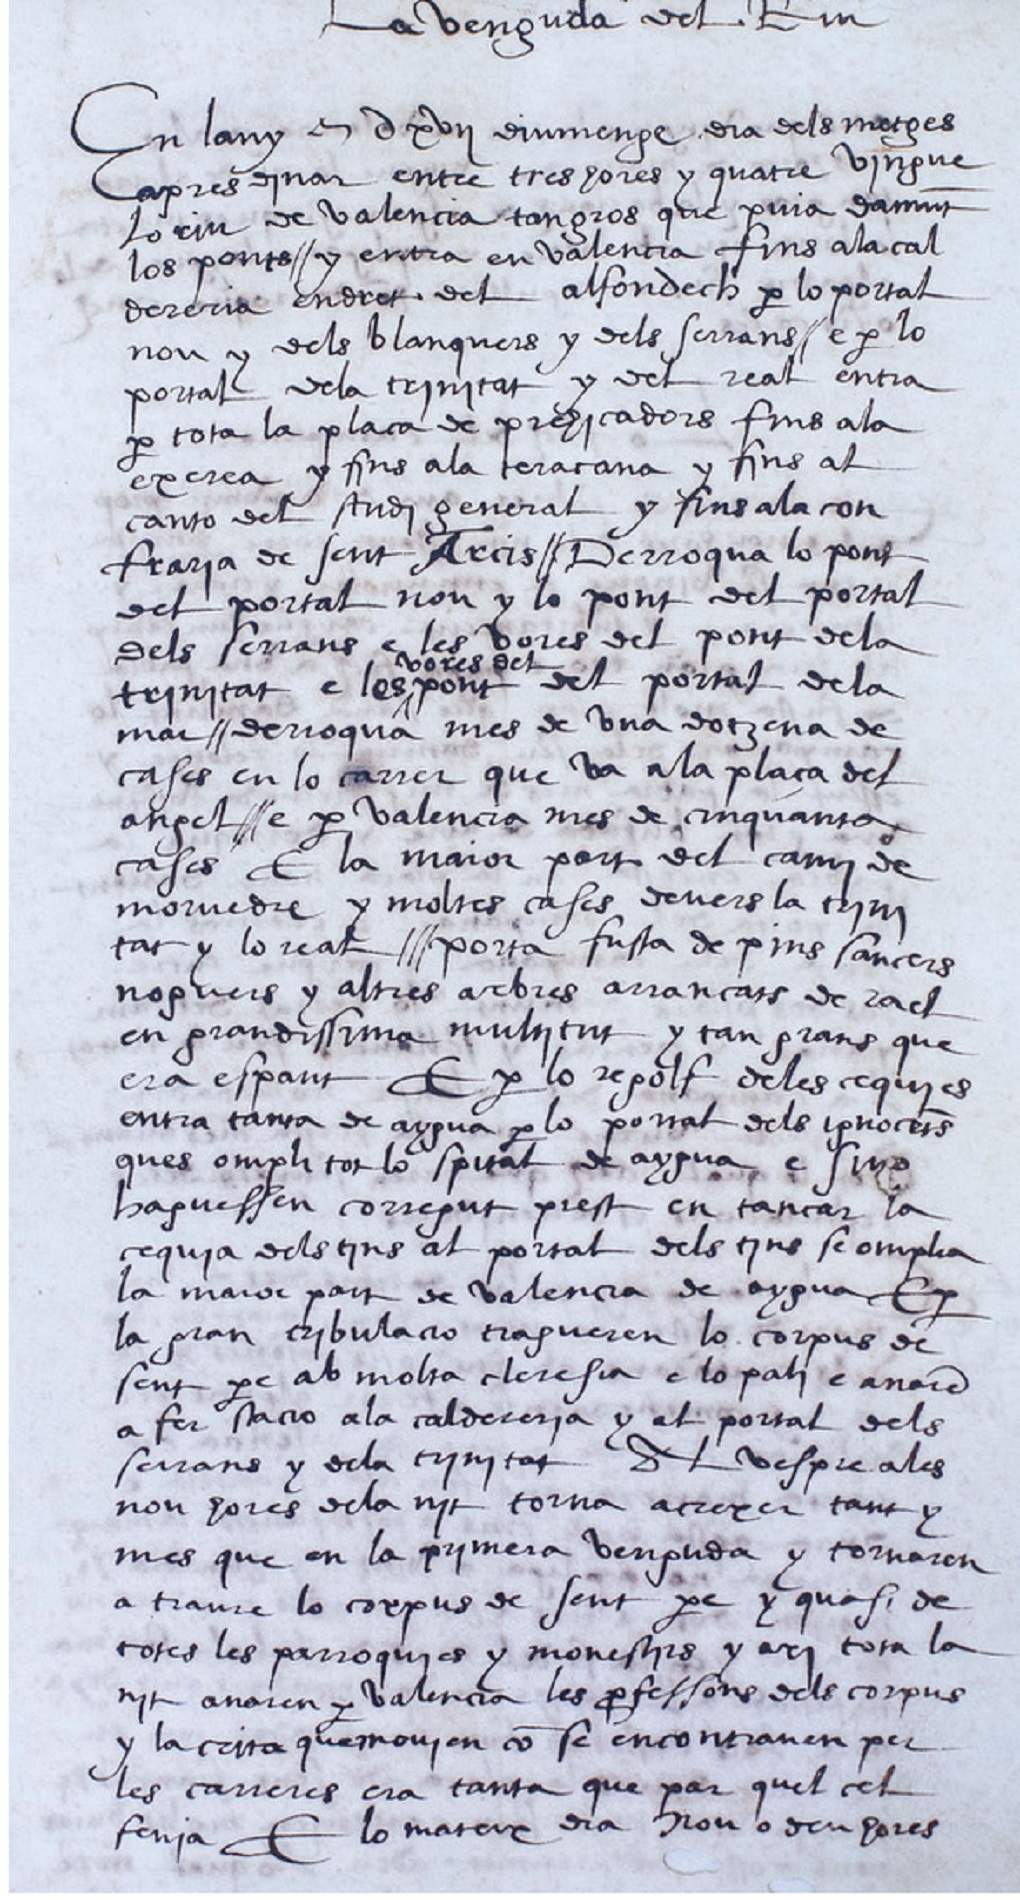 La venguda del Riu
En lany M D xvij diumenge dia dels metges
apres dinar entre tres hores y quatre vingue
Lo riu de valencia tan gros que puia damūt
los ponts // y entra en valencia fins ala cal
dereria endret del alfondech p̱ lo portal
nou y dels blanquers y dels serrans // e p̱ lo
portal dela trinitat y del real entra
p̱ tota la placa de prehicadors fins ala
exerea y fins ala teracana y fins al
canto del studi general y fins ala con
fraria de sent Arcis // Derroqua lo pont
del portal nou y lo pont del portal
dels serrans e les vores del pont dela
trinitat e les vores del pont del portal dela
mar // derroqua mes de vna dotzena de
cases en lo carrer que va ala plaça del
angel /// e p̱ valencia mes de cinquanta
cases E la maior part del cami de
moruedre y moltes cases deuers la trini
tat y lo real /// porta fusta de pins sancers
noguers y altres arbres arrancats de rael
en grandissima multitut y tan grans que
era espant E p̱ lo regolf deles cequies
entra tanta de aygua p̱ lo portal dels ignocēts
ques ompli tot lo spital de aygua e si no
haguessen corregut prest en tancar la
cequia dels tins al portal dels tins se omplia
la maior part de valencia de aygua E p̱
la gran tribulacio tragueren lo corpus de
sent pe ab molta cleresia e lo pali e anarē
a fer stacio ala caldereria y al portal dels
serrans y dela trinitat Al vespre ales
nou hores dela nit torna acrexer tant y
mes que en la primera venguda y tornaren
a traure lo corpus de sent pe y quasi de
totes les parroquies y monestirs y axi tota la
nit anaren p̱ valencia les p̱fessons dels corpus
y la crita que mouien cō se encontrauen per
les carreres era tanta que par quel cel
fenia E lo mateix dia nou o deu hores